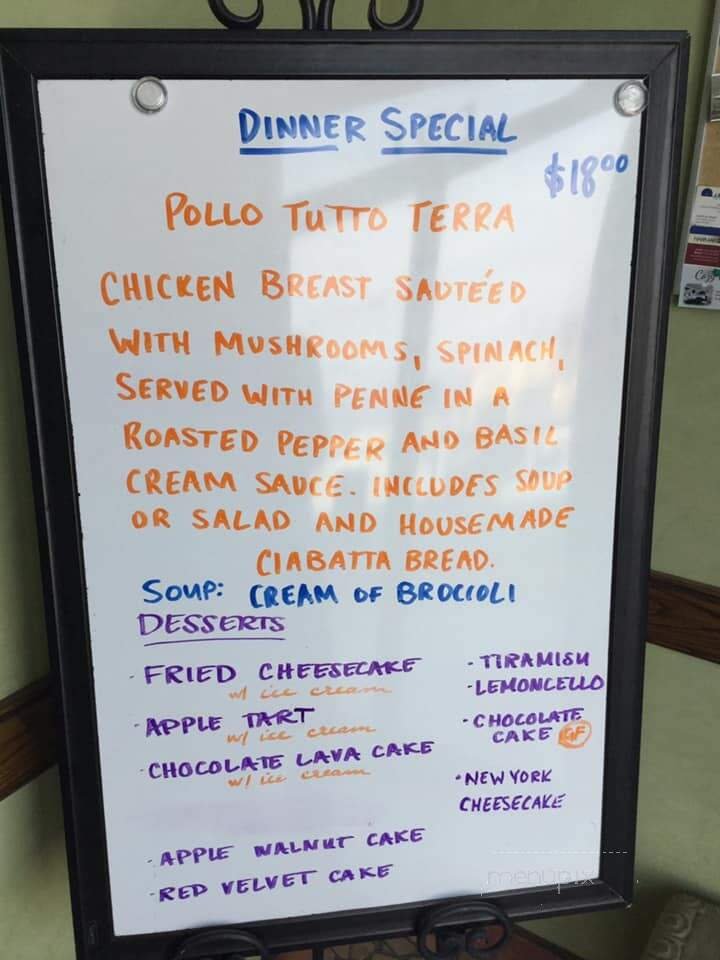 DINNER SPECIAL
$18.00
POLLO TUTTO TERRA
CHICKEN BREAST SAUTÉ'ED
WITH MUSHROOMS, SPINACH,
SERVED WITH PENNE IN A
ROASTED PEPPER AND BASIL
CREAM SAUCE. INCLUDES SOUP
OR SALAD AND HOUSEMADE
CIABATTA BREAD.
SOUP: CREAM OF BROCCOLI
DESSERTS
- FRIED CHEESECAKE
w/ ice cream
- APPLE TART
w/ ice cream
- CHOCOLATE LAVA CAKE
w/ ice cream
- APPLE WALNUT CAKE
- RED VELVET CAKE
- TIRAMISU
- LEMONCELLO
- CHOCOLATE
CAKE GF
- NEW YORK
CHEESECAKE
menupix